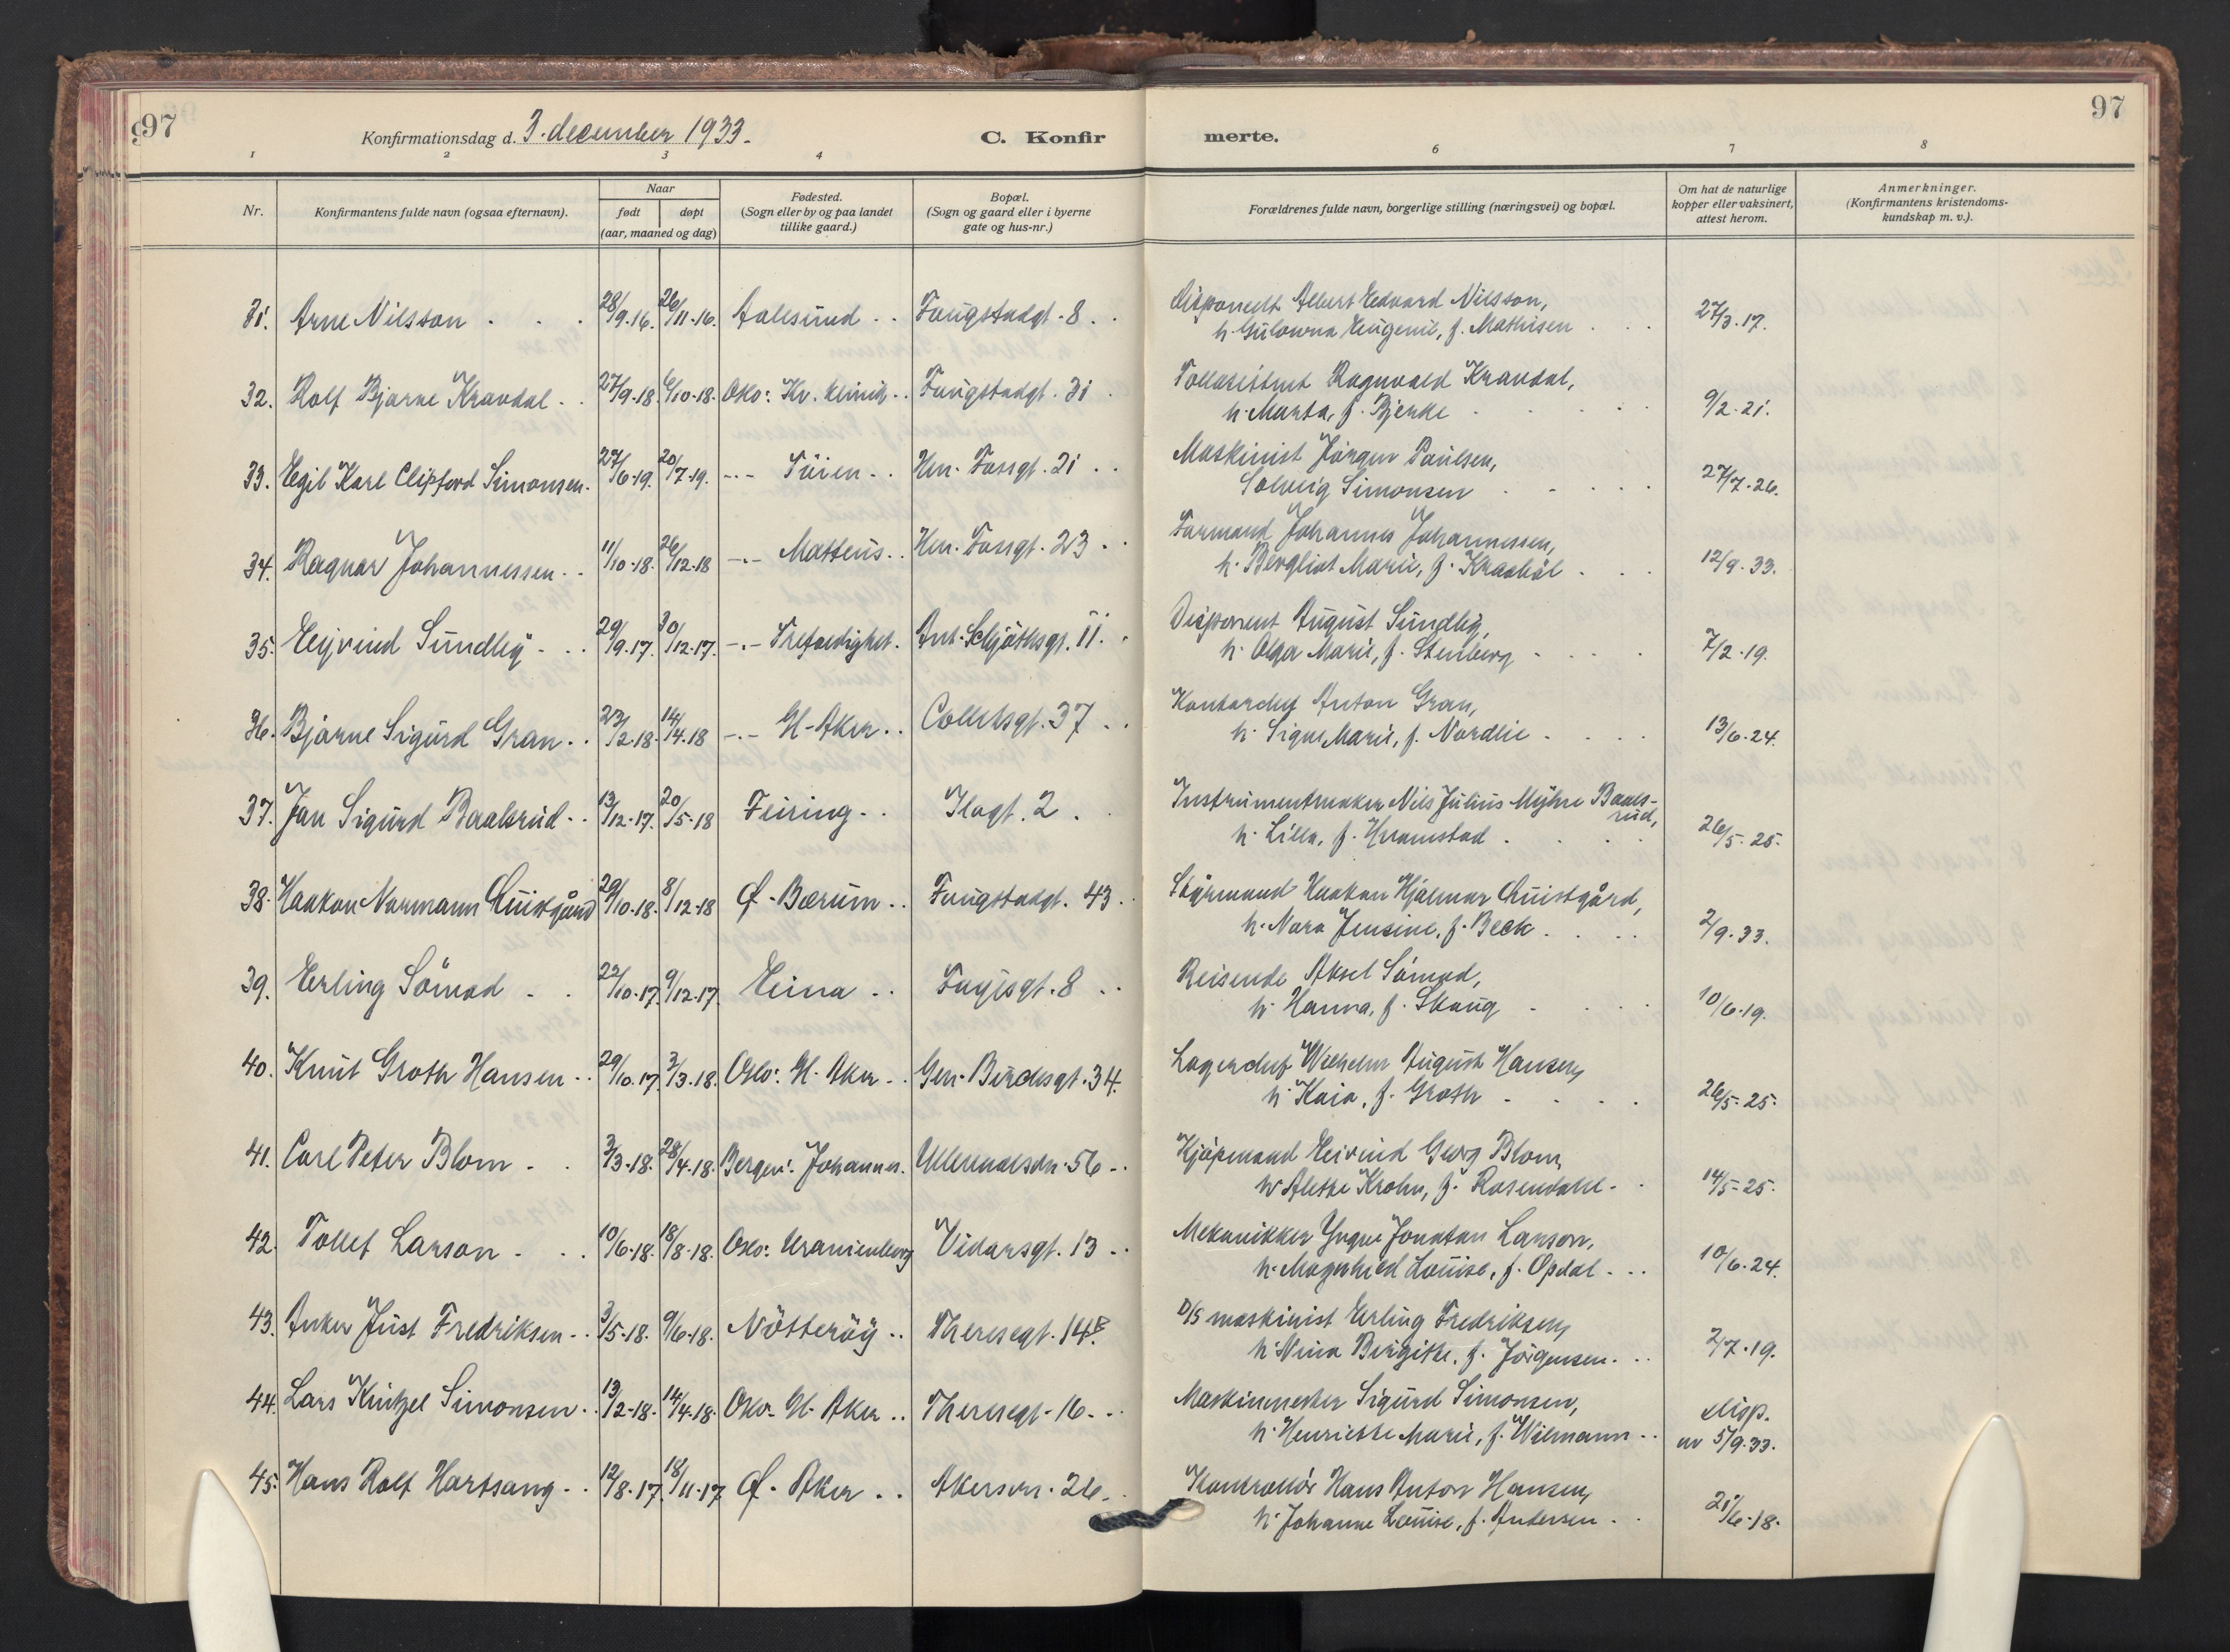 97
Konfirmationsdag d. 3. december 1933.
C. Konfir
merte.
97
1 2 3 4 6 7 8
Nr.
Konfirmantens fulde navn (ogsaa efternavn).
Naar
født døpt
(aar, maaned og dag)
Fødested.
(Sogn eller by og paa landet
tillike gaard.)
Bopæl.
(Sogn og gaard eller i byerne
gate og hus-nr.)
Forældrenes fulde navn, borgerlige stilling (næringsvei) og bopæl.
Om hat de naturlige
kopper eller vaksinert,
attest herom.
Anmerkninger.
(Konfirmantens kristendoms-
kundskap m. v.).
31. Arne Nilsson . . . 28/9.16. 26/11.16. Aalesund . . Fougstadgt. 8 . .
Disponent Albert Edvard Nilsson,
h. Eugenie, f. Mathisen . . . 27/3.17.
32. Rolf Bjarne Kravdal . . 27/9.18. 6/10.18. Oslo: Kv. klinik . . Fougstadgt. 31 .
Tollassistent Ragnvald Kravdal,
h. Marta, f. Bjerke . . . . 9/2.21.
33. Egil Karl Clifford Simonsen. 27/6.19. 20/7.19. -.- Töien . . Hen. Fossgt. 21 . .
Maskinist Jörgen Paulsen,
Solveig Simonsen . . . . 27/7.26.
34. Ragnar Johannessen . . 11/10.18. 26/12.18 -.- Matteus . . Hen. Fossgt. 23 . .
Formand Johannes Johannessen,
h. Bergliot Marie, f. Kraabøl . . . 12/9.33.
35. Eyvind Sundby . . . 29/9.17. 30/12.17. -.- Trefoldighet. Ant. Schjöthsgt. 11. .
Disponent August Sundby,
h. Olga Marie, f. Stenberg . . . . 7/2.19.
36. Bjarne Sigurd Gran . . 23/2.18. 14/4.18 -.- Gl-Aker . . Colletsgt. 37 . .
Kontorchef Anton Gran,
h. Signe Marie, f. Nordlie . . . . 13/6.24.
37. Jan Sigurd Baalsrud . . 13/12.17. 20/5.18 Feiring . . Ilagt. 2 . .
Instrumentmaker Nils Julius Myhre Baals-
rud,
h. Lilla, f. . . . . 26/5.25.
38. Haakon Normann Quistgård 29/10.18. 8/12.18 Ø. Bærum . . Fougstadgt. 43 .
Styrmand Haakon Hjalmar Quistgård,
h. Nora Jensine, f. Beck . . . . 2/9.33.
39. Erling Sömod . . 22/10.17 9/12.17. Eina . . Fagisgt. 8 . .
Reisende Aksel Sömod,
h. Hanna, f. Skaug . . . . 10/6.19.
40. Knut Groth Hansen . . 29/10.17. 3/3.18. Oslo: Gl. Aker . . Gen. Birchsgt. 34.
Lagerchef Wilhelm August Hansen,
h. Kaia, f. Groth . . . . 26/5.25.
41. Carl Peter Blom . . 3/3.18. 28/4.18. Bergen: Johannes. Ullevaalsvn. 56 . .
Kjöpmand Eivind Georg Blom,
h. Alethe Krohn, f. Rosendahl . . 14/5.25.
42. Tollef Larson . . . 10/6.18. 18/8.18. Oslo: Uranienborg Vidarsgt. 13 . .
Mekanikker Yngve Jonatan Larson,
h. Magnhild Louise, f. Opdal . . . 10/6.24.
43. Anker Just Fredriksen . . 3/5.18. 9/6.18. Nötteröy . . Theresegt. 14B.
D/S maskinist Erling Fredriksen,
h. Nina Birgitte, f. Jörgensen . . . 2/7.19.
44. Lars Kintzel Simonsen . . 13/2.18. 14/4.18. Oslo: Gl. Aker . . Theresegt. 16 . . .
Maskinmester Sigurd Simonsen,
h. Henriette Marie, f. Wilmann . . disp.
av 5/9.33.
45. Hans Rolf Hartsang . . 12/8.17. 18/11.17 Ø. Aker . . Akersvn. 26 . .
Kontrollör Hans Anton Hansen,
h. Johanne Louise, f. Andersen . . 21/6.18.